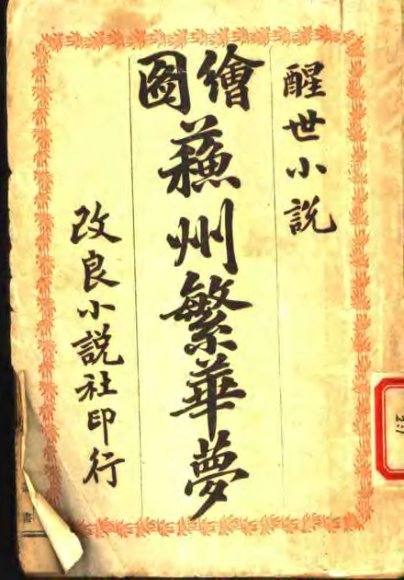 醒世小説
繪圖
蘇州繁華夢
改良小說社印行
書